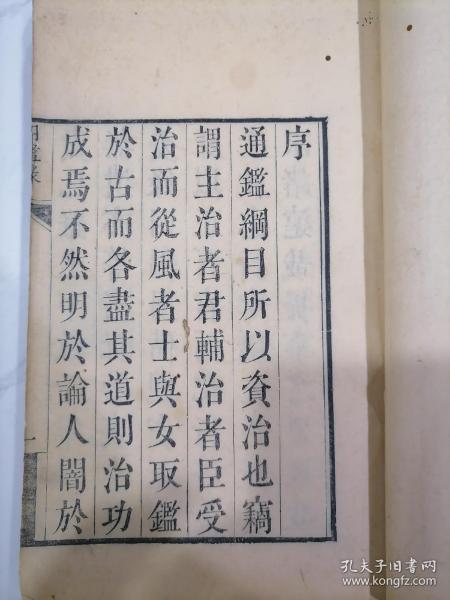 序
通鑑綱目所以資治也竊
謂主治者君輔治者臣受
治而從風者士與女取鑑
於古而各盡其道則治功
成焉不然明於論人闇於
孔夫子旧书网
www.kongfz.com